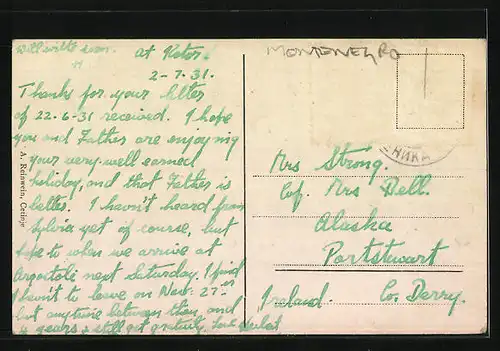 Will write soon.
at Kotor
2-7.31.
Thanks for your letter
of 22.6.31 received. I hope
you and Father are enjoying
your very well earned
holiday, and that Father is
better. I haven't heard from
Sylvia yet of course, but
hope to when we arrive at
Argostoli next Saturday. I find
I haven't to leave on Nov. 27th
but anytime between then and
4 years & still get gratuity.
A. Reinwein, Cetinje
MONTENEGRO
НИКА
Mrs Strong.
c/o. Mrs Bell.
Alaska
Portstewart
Co. Derry.
Ireland.